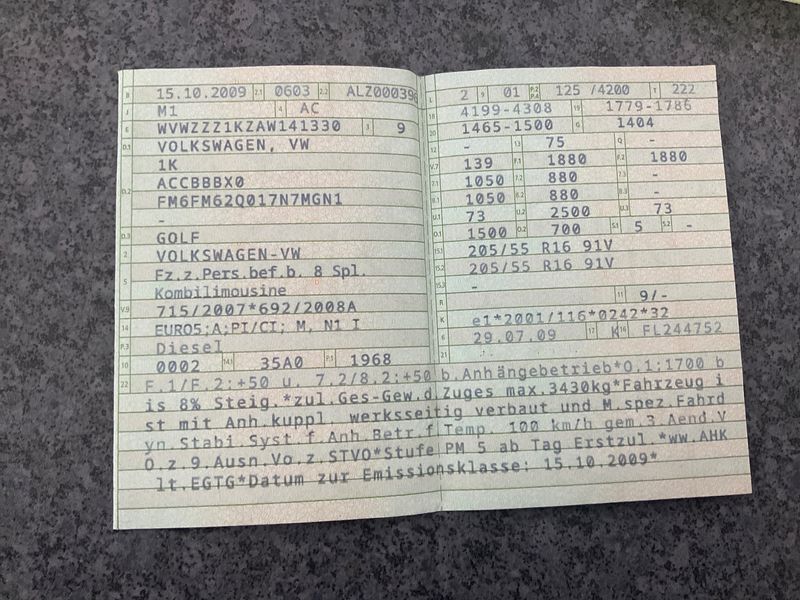 B 15.10.2009 2.1 0603 2.2 ALZ000396
J M1 4 AC
E WVWZZZ1KZAW141330 3 9
D.1 VOLKSWAGEN, VW
1K
D.2 ACCBBBX0
FM6FM62Q017N7MGN1
-
D.3 GOLF
2 VOLKSWAGEN-VW
5 Fz.z.Pers.bef.b. 8 Spl.
Kombilimousine
V.9 715/2007*692/2008A
14 EURO5;A;PI/CI; M, N1 I
P.3 Diesel
10 0002 14.1 35A0 P.1 1968
L 2 9 01 P.2 P.4 125 /4200 T 222
18 4199-4308 19 1779-1786
20 1465-1500 G 1404
12 - 13 75 Q -
V.7 139 F.1 1880 F.2 1880
7.1 1050 7.2 880 7.3 -
8.1 1050 8.2 880 8.3 -
U.1 73 U.2 2500 U.3 73
O.1 1500 O.2 700 S.1 5 S.2 -
15.1 205/55 R16 91V
15.2 205/55 R16 91V
15.3 -
R 11 9/-
K e1*2001/116*0242*32
6 29.07.09 17 K 16 FL244752
21
22 F.1/F.2:+50 u. 7.2/8.2:+50 b.Anhängebetrieb*O.1:1700 b
is 8% Steig.*zul.Ges-Gew.d.Zuges max.3430kg*Fahrzeug i
st mit Anh.kuppl. werksseitig verbaut und M.spez.Fahrd
yn.Stabi.Syst.f.Anh.Betr.f.Temp. 100 km/h gem.3.Aend.V
O.z.9.Ausn.Vo.z.STVO*Stufe PM 5 ab Tag Erstzul.*ww.AHK
lt.EGTG*Datum zur Emissionsklasse: 15.10.2009*